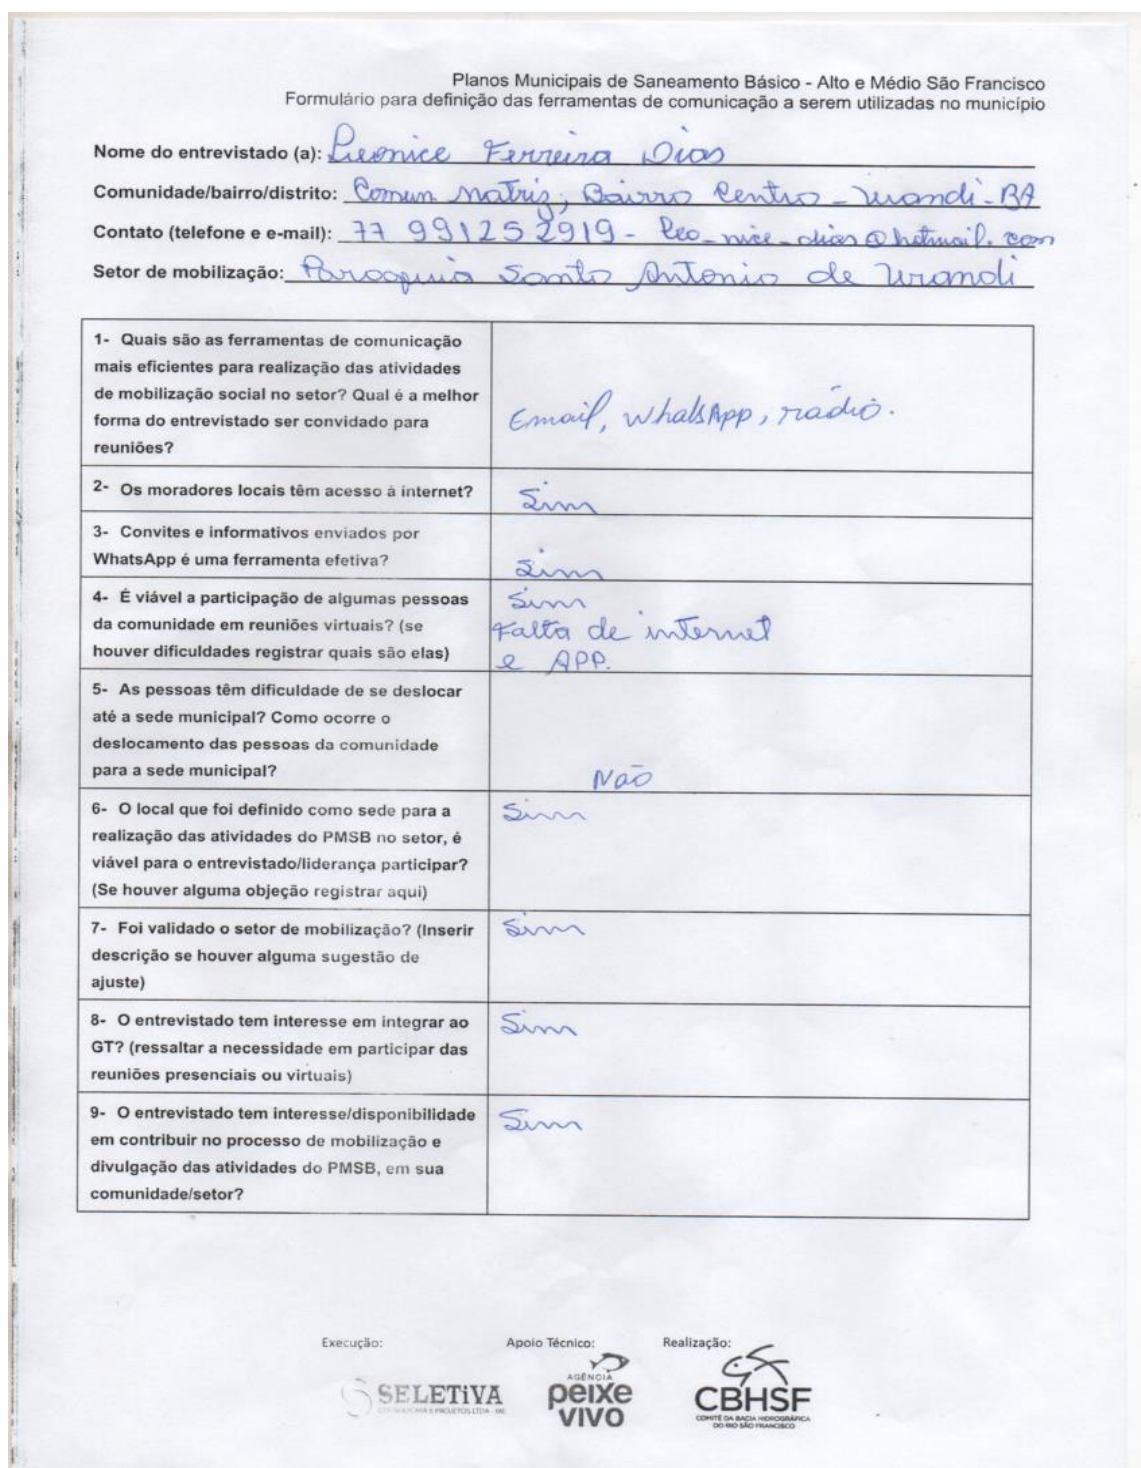 Planos Municipais de Saneamento Básico - Alto e Médio São Francisco
Formulário para definição das ferramentas de comunicação a serem utilizadas no município
Nome do entrevistado (a): Leonice Ferreira Dias
Comunidade/bairro/distrito: Comun Matriz, Bairro Centro - Urandi-BA
Contato (telefone e e-mail): 77 991252919 - leo_nice_dias@hotmail.com
Setor de mobilização: Paroquia Santo Antonio de Urandi
1- Quais são as ferramentas de comunicação
mais eficientes para realização das atividades
de mobilização social no setor? Qual é a melhor
forma do entrevistado ser convidado para
reuniões?
Email, WhatsApp, rádio.
2- Os moradores locais têm acesso à internet?
Sim
3- Convites e informativos enviados por
WhatsApp é uma ferramenta efetiva?
Sim
4- É viável a participação de algumas pessoas
da comunidade em reuniões virtuais? (se
houver dificuldades registrar quais são elas)
Sim
Falta de internet
e APP.
5- As pessoas têm dificuldade de se deslocar
até a sede municipal? Como ocorre o
deslocamento das pessoas da comunidade
para a sede municipal?
Não
6- O local que foi definido como sede para a
realização das atividades do PMSB no setor, é
viável para o entrevistado/liderança participar?
(Se houver alguma objeção registrar aqui)
Sim
7- Foi validado o setor de mobilização? (Inserir
descrição se houver alguma sugestão de
ajuste)
Sim
8- O entrevistado tem interesse em integrar ao
GT? (ressaltar a necessidade em participar das
reuniões presenciais ou virtuais)
Sim
9- O entrevistado tem interesse/disponibilidade
em contribuir no processo de mobilização e
divulgação das atividades do PMSB, em sua
comunidade/setor?
Sim
Execução: Apoio Técnico: Realização:
SELETiVA
CONSULTORIA E PROJETOS LTDA - ME
AGÊNCIA
peixe
vivo
CBHSF
COMITÊ DA BACIA HIDROGRÁFICA
DO RIO SÃO FRANCISCO